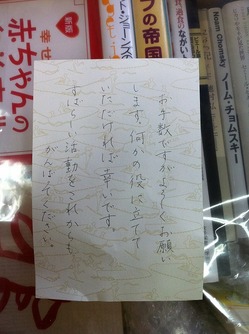 お手数ですがよろしくお願い
します。何かの役に立てて
いただければ幸いです。
すばらしい活動をこれからも
がんばってください。
Noam Chomsky
ノーム・チョムスキー
の帝国
赤ちゃんの
幸せ